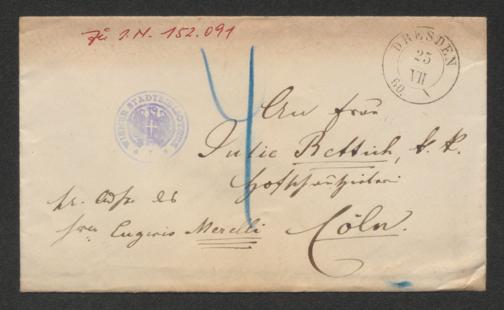 Zu I.N. 152.091
DRESDEN
25
VII
60.
WIENER STADTBIBLIOTHEK
An Frau
Julie Rettich, k. k.
Hofschauspielerin
pr. Adr. des
Herrn Eugenio Merelli
Cöln.